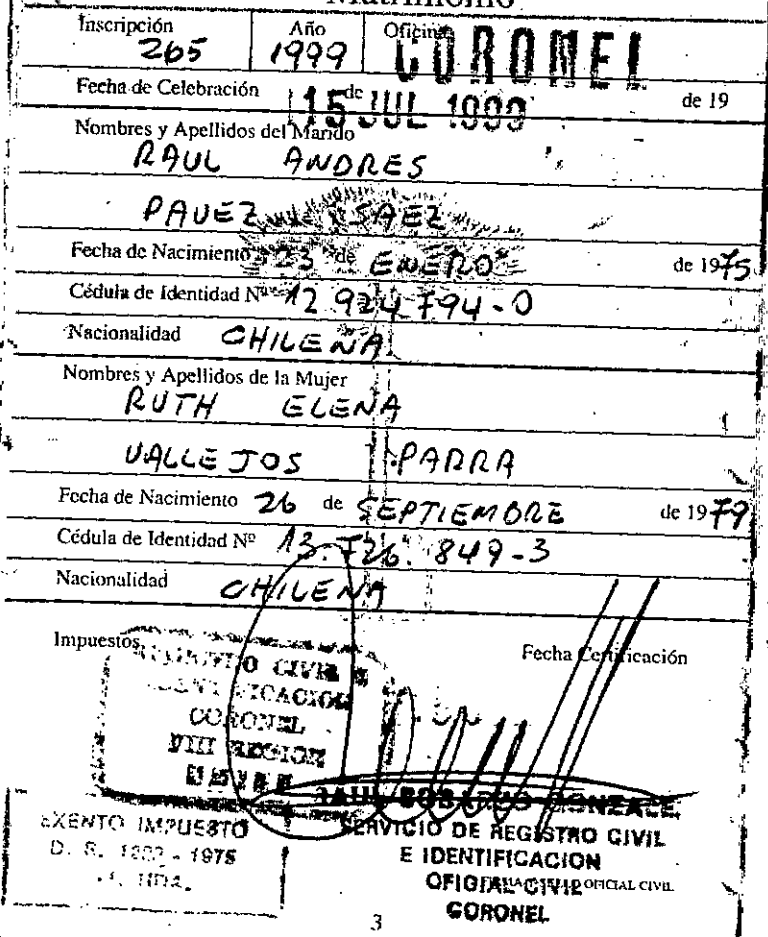 Matrimonio
Inscripción Año Oficina
265 1999 CORONEL
Fecha de Celebración 15 de JUL 1999 de 19
Nombres y Apellidos del Marido
RAUL ANDRES
PAVEZ SAEZ
Fecha de Nacimiento 23 de ENERO de 1975
Cédula de Identidad Nº 12 924 794-0
Nacionalidad CHILENA
Nombres y Apellidos de la Mujer
RUTH ELENA
VALLEJOS PARRA
Fecha de Nacimiento 26 de SEPTIEMBRE de 1979
Cédula de Identidad Nº 13.726.849-3
Nacionalidad CHILENA
Impuestos Fecha Certificación
CIVIL E
CORONEL
VIII REGION
EXENTO IMPUESTO
D. S. 1975
RAUL GONZALE
SERVICIO DE REGISTRO CIVIL
E IDENTIFICACION
OFICIAL CIVIL OFICIAL CIVIL
CORONEL
3